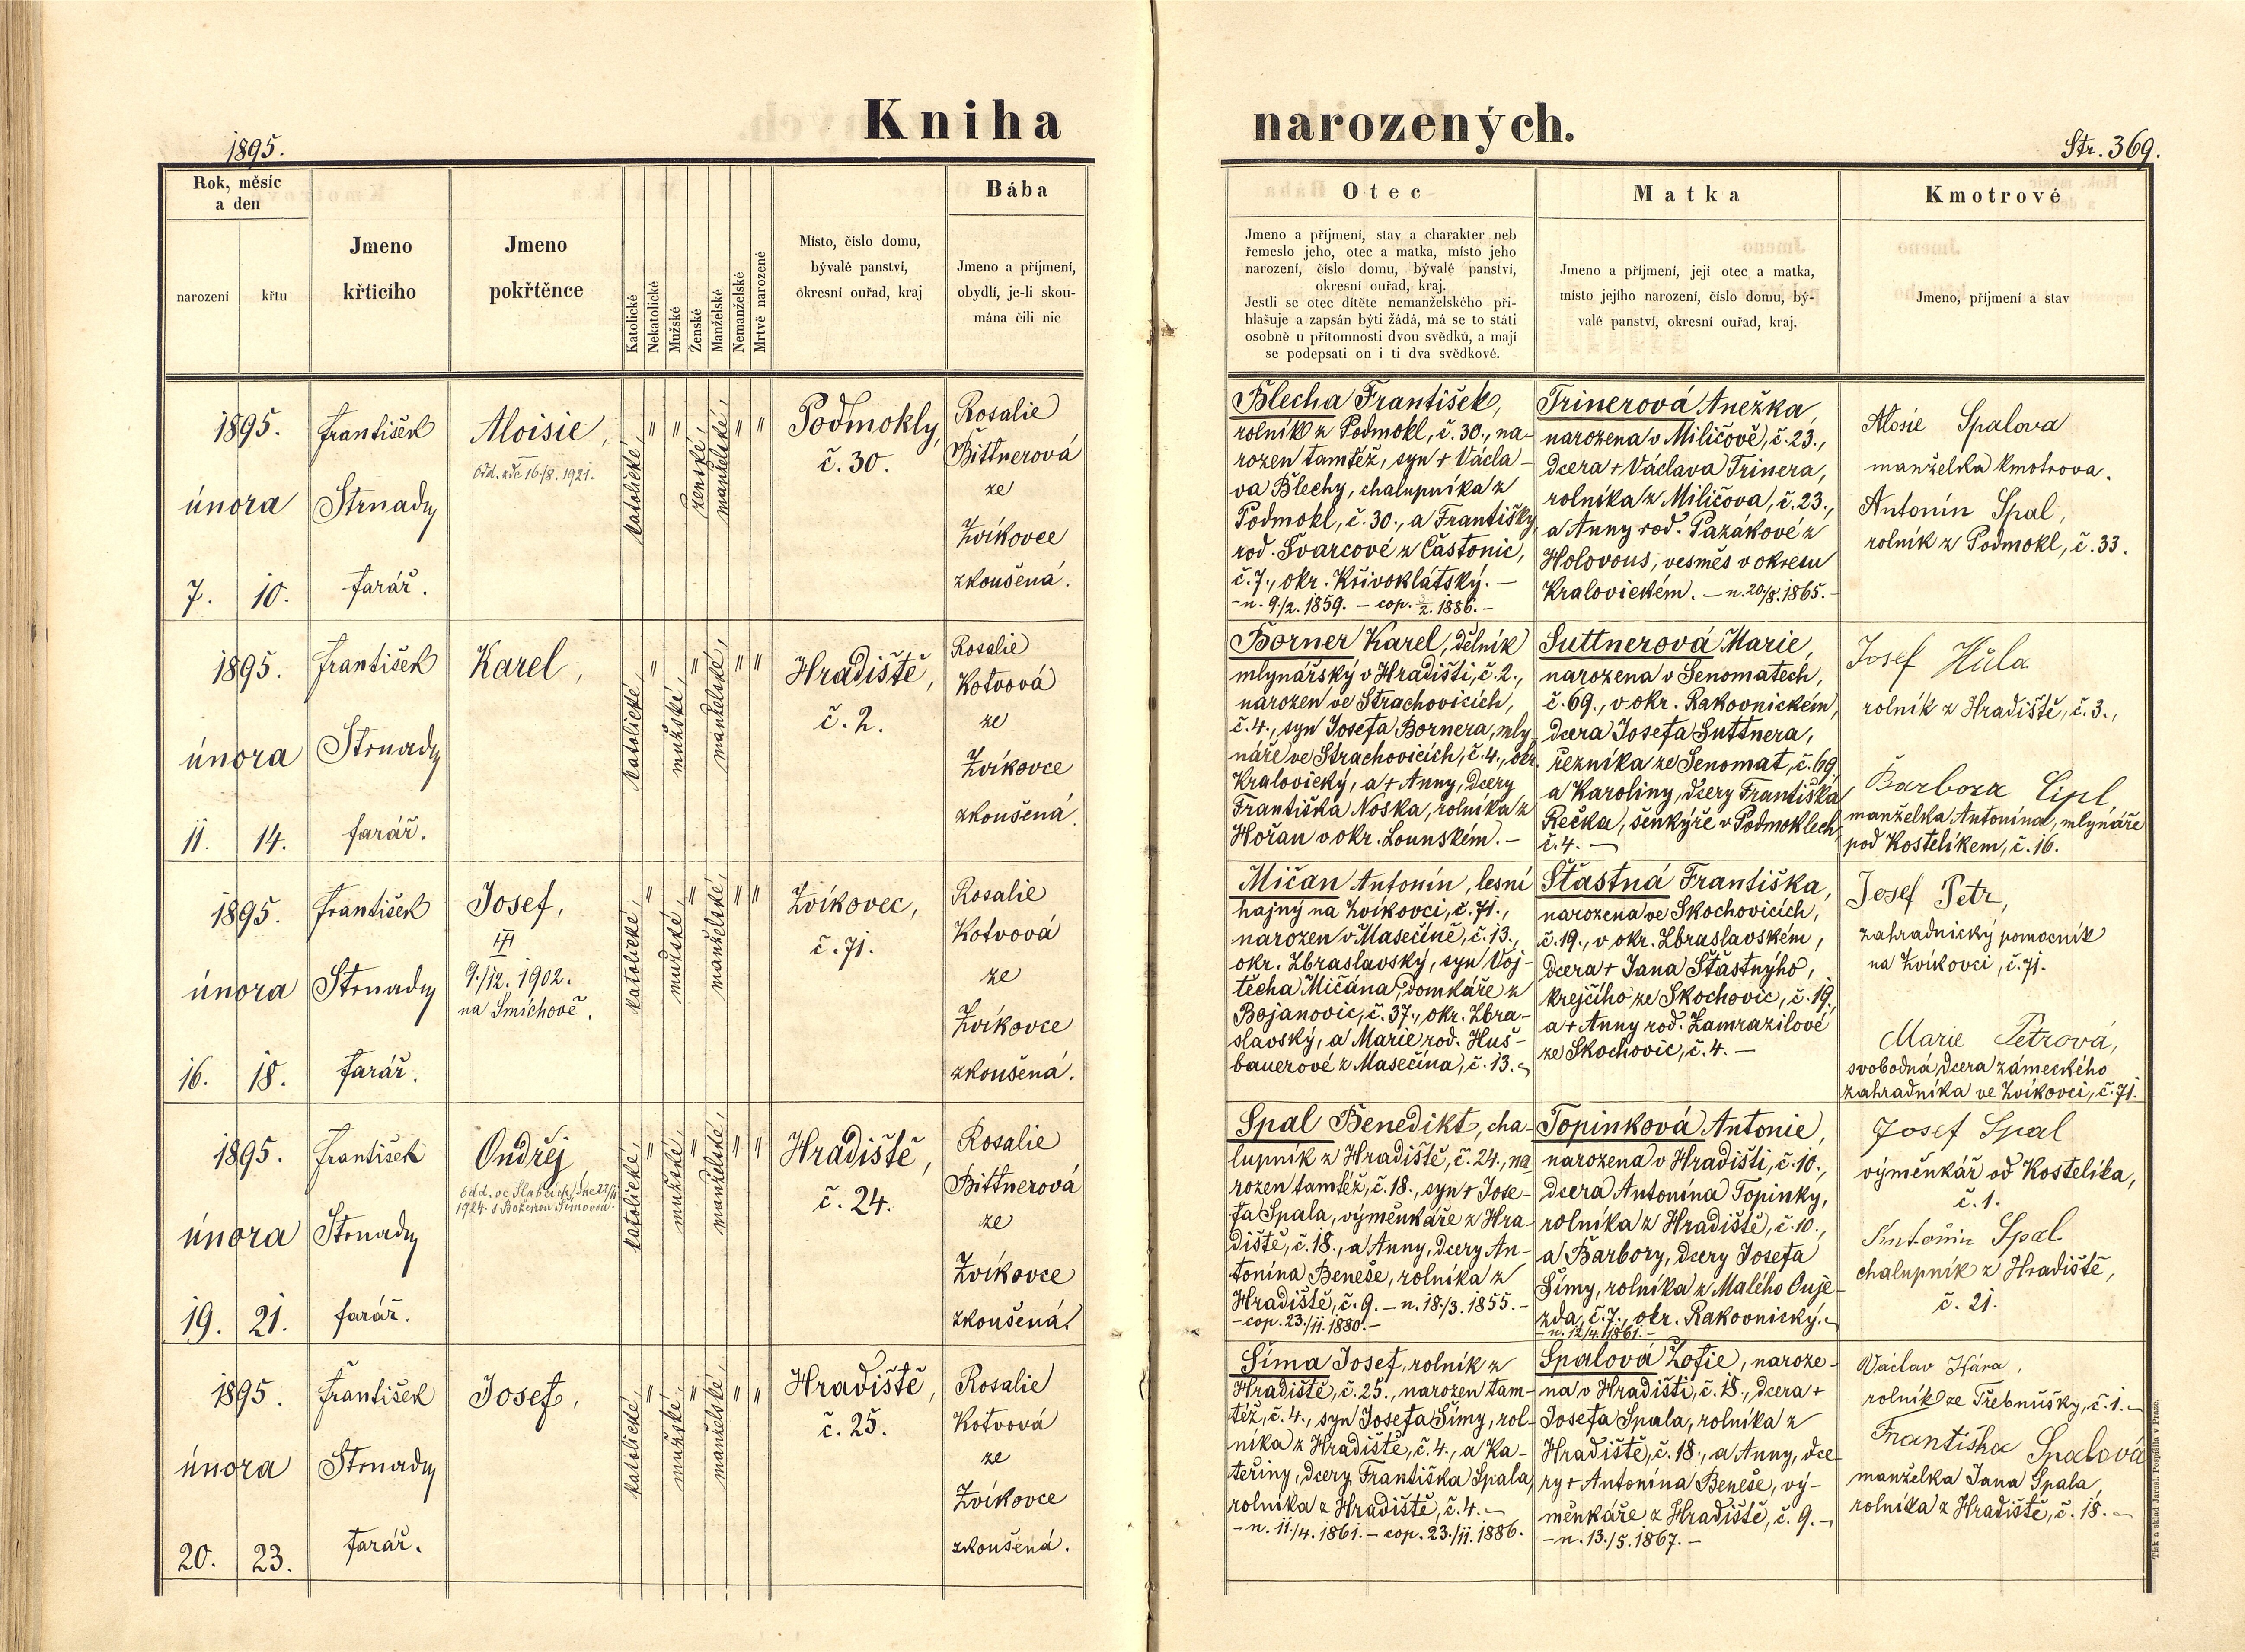 Kniha narozených.
1895.
Str. 369.
Rok, měsíc
a den
narození
křtu
Jmeno
křticího
Jmeno
pokřtěnce
Katolické
Nekatolické
Mužské
Ženské
Manželské
Nemanželské
Mrtvě narozené
Místo, číslo domu,
bývalé panství,
okresní ouřad, kraj
Bába
Jmeno a příjmení,
obydlí, je-li skou-
mána čili nic
Otec
Jmeno a příjmení, stav a charakter neb
řemeslo jeho, otec a matka, místo jeho
narození, číslo domu, bývalé panství,
okresní ouřad, kraj.
Jestli se otec dítěte nemanželského při-
hlašuje a zapsán býti žádá, má se to státi
osobně u přítomnosti dvou svědků, a mají
se podepsati on i ti dva svědkové.
Matka
Jmeno a příjmení, její otec a matka,
místo jejího narození, číslo domu, bý-
valé panství, okresní ouřad, kraj.
Kmotrové
Jmeno, příjmení a stav
1895.
února
7.
10.
František
Strnady
farář.
Aloisie,
Odd. zde 16/8. 1921.
katolické,
"
"
ženské,
manželské,
"
"
Podmokly,
č. 30.
Rosalie
Bittnerová
ze
Zvíkovce
zkoušená.
Blecha František,
rolník z Podmokl, č. 30., na-
rozen tamtéž, syn + Václa-
va Blechy, chalupníka z
Podmokl, č. 30., a Františky
rod. Švarcové z Částonic,
č. 7., okr. Křivoklátský. —
— n. 9/2. 1859. — cop. 3/2. 1886. —
Trinerová Anežka,
narozena v Miličově, č. 23.,
dcera + Václava Trinera,
rolníka z Miličova, č. 23.,
a Anny rod. Pazákové z
Holovous, vesměs v okresu
Kralovickém. — n. 20/8. 1865. —
Aloisie Spalova
manželka kmotrova.
Antonín Spal,
rolník z Podmokl, č. 33.
1895.
února
11.
14.
František
Strnady
farář.
Karel,
katolické,
"
mužské,
"
manželské,
"
"
Hradiště,
č. 2.
Rosalie
Kotvová
ze
Zvíkovce
zkoušená.
Borner Karel, dělník
mlynářský v Hradišti, č. 2.,
narozen ve Strachovicích,
č. 4., syn Josefa Bornera, mly
náře ve Strachovicích, č. 4., okr.
Kralovický, a + Anny, dcery
Františka Noska, rolníka z
Hořan v okr. Lounském. —
Suttnerová Marie,
narozena v Senomatech,
č. 69., v okr. Rakovnickém,
dcera Josefa Suttnera,
řezníka ze Senomat, č. 69,
a Karoliny, dcery Františka
Rečka, šenkýře v Podmoklech,
č. 4. —
Josef Hůla
rolník z Hradiště, č. 3.,
Barbora Cipl,
manželka Antonína, mlynáře
pod Kostelíkem, č. 16.
1895.
února
16.
18.
František
Strnady
farář.
Josef,
9./12. 1902.
na Smíchově.
katolické,
"
mužské,
"
manželské,
"
"
Zvíkovec,
č. 71.
Rosalie
Kotvová
ze
Zvíkovce
zkoušená.
Mičan Antonín, lesní
hajný na Zvíkovci, č. 71.,
narozen v Masečíně, č. 13.,
okr. Zbraslavský, syn Voj-
těcha Mičána, domkáře z
Bojanovic, č. 37., okr. Zbra-
slavský, a Marie rod. Huš-
bauerové z Masečína, č. 13. —
Šťastná Františka,
narozena ve Skochovicích,
č. 19., v okr. Zbraslavském,
dcera + Jana Šťastnýho,
krejčího ze Skochovic, č. 19.,
a + Anny rod. Zamrazilové
ze Skochovic, č. 4. —
Josef Petr,
zahradnický pomocník
na Zvíkovci, č. 71.
Marie Petrová,
svobodná, dcera zámeckého
zahradníka ve Zvíkovci, č. 71.
1895.
února
19.
21.
František
Strnady
farář.
Ondřej
odd. ve Slabcích dne 22/11
1924. s Boženou Šímovou.
katolické,
"
mužské,
"
manželské,
"
"
Hradiště,
č. 24.
Rosalie
Bittnerová
ze
Zvíkovce
zkoušená.
Spal Benedikt, cha-
lupník z Hradiště, č. 24., na
rozen tamtéž, č. 18., syn + Jose-
fa Spala, výměnkáře z Hra-
diště, č. 18., a Anny, dcery An-
tonína Beneše, rolníka z
Hradiště, č. 9. — n. 18./3. 1855. —
— cop. 23./11. 1880. —
Topinková Antonie,
narozena v Hradišti, č. 10.,
dcera Antonína Topinky,
rolníka z Hradiště, č. 10.,
a Barbory, dcery Josefa
Šímy, rolníka z Malého Ouje-
zda, č. 7., okr. Rakovnický. —
— n. 12/4. 1861. —
Josef Spal
výměnkář od Kostelíka,
č. 1.
Antonín Spal
chalupník z Hradiště,
č. 21.
1895.
února
20.
23.
František
Strnady
farář.
Josef,
katolické,
"
mužské,
"
manželské,
"
"
Hradiště,
č. 25.
Rosalie
Kotvová
ze
Zvíkovce
zkoušená.
Šíma Josef, rolník z
Hradiště, č. 25., narozen tam-
též, č. 4., syn Josefa Šímy, rol-
níka z Hradiště, č. 4., a Ka-
teřiny, dcery Františka Spala,
rolníka z Hradiště, č. 4. —
— n. 11./4. 1861. — cop. 23./11. 1886.
Spalová Žofie, naroze-
na v Hradišti, č. 18., dcera +
Josefa Spala, rolníka z
Hradiště, č. 18., a Anny, dce
ry + Antonína Beneše, vý-
měnkáře z Hradiště, č. 9. —
— n. 13./5. 1867. —
Václav Hára,
rolník ze Třebnušky, č. 1. —
Františka Spalová
manželka Jana Spala,
rolníka z Hradiště, č. 18. —
Tisk a sklad Jarosl. Pospíšila v Praze.